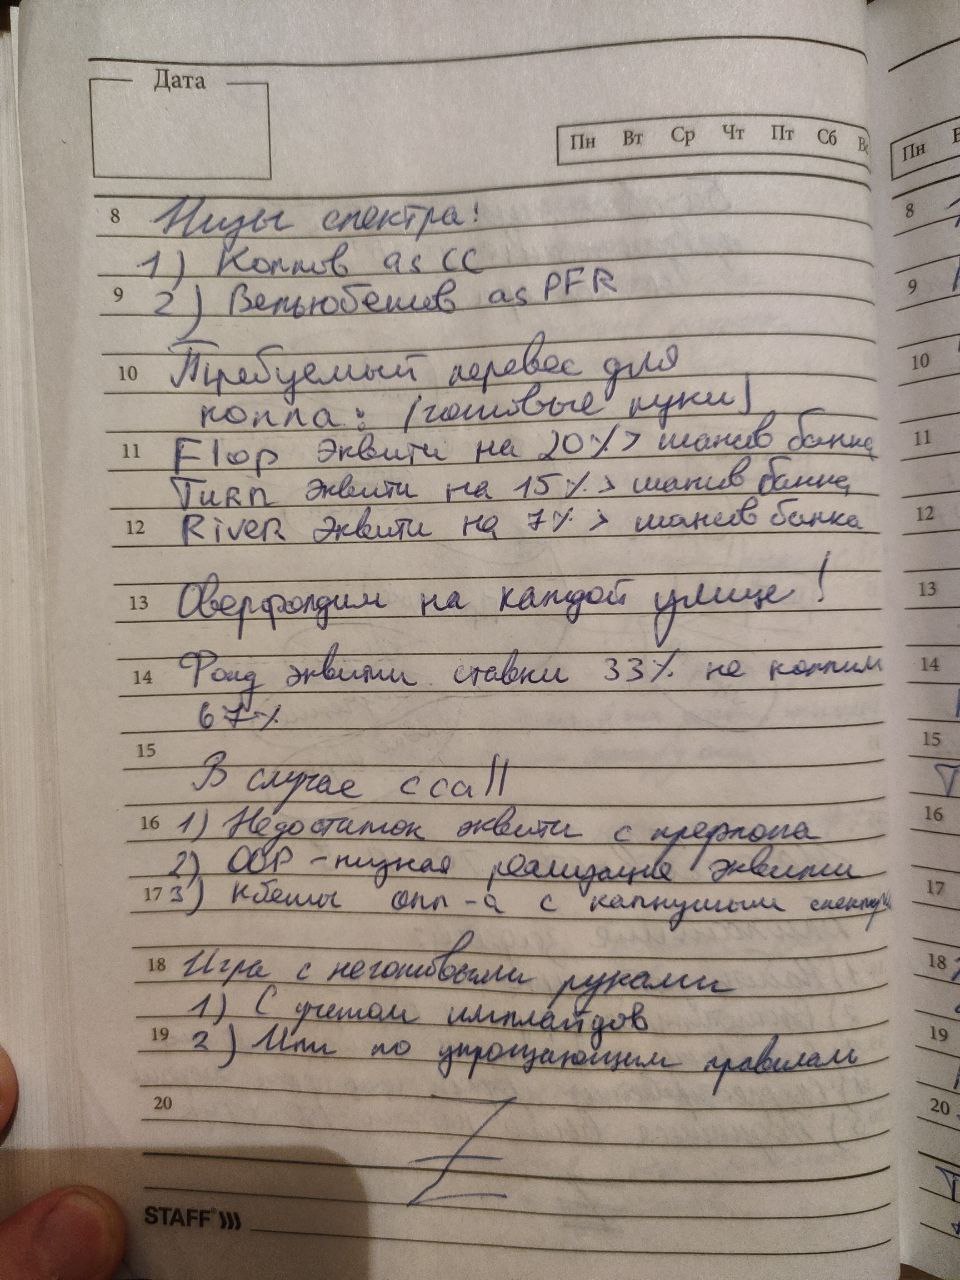 Дата
Пн Вт Ср Чт Пт Сб Вс
8 Низы спектра:
1) Коллов as CC
9 2) Вельюбетов as PFR
10 Требуемый перевес для
колла: (готовые руки)
11 Flop эквити на 20% > шансов банка
Turn эквити на 15% > шансов банка
12 River эквити на 7% > шансов банка
13 Оверфолдим на каждой улице!
14 Фолд эквити ставки 33% не коллим
67%
15
В случае ccall
16 1) Недостаток эквити с префлопа
2) OOP - низкая реализация эквити
17 3) Кбеты опп-а с капнутым спектром
18 Игра с неготовыми руками
1) С учетом имплайдов
19 2) Или по упрощающим правилам
20
STAFF
Пн
8
9
10
11
12
13
14
15
16
17
18
19
20